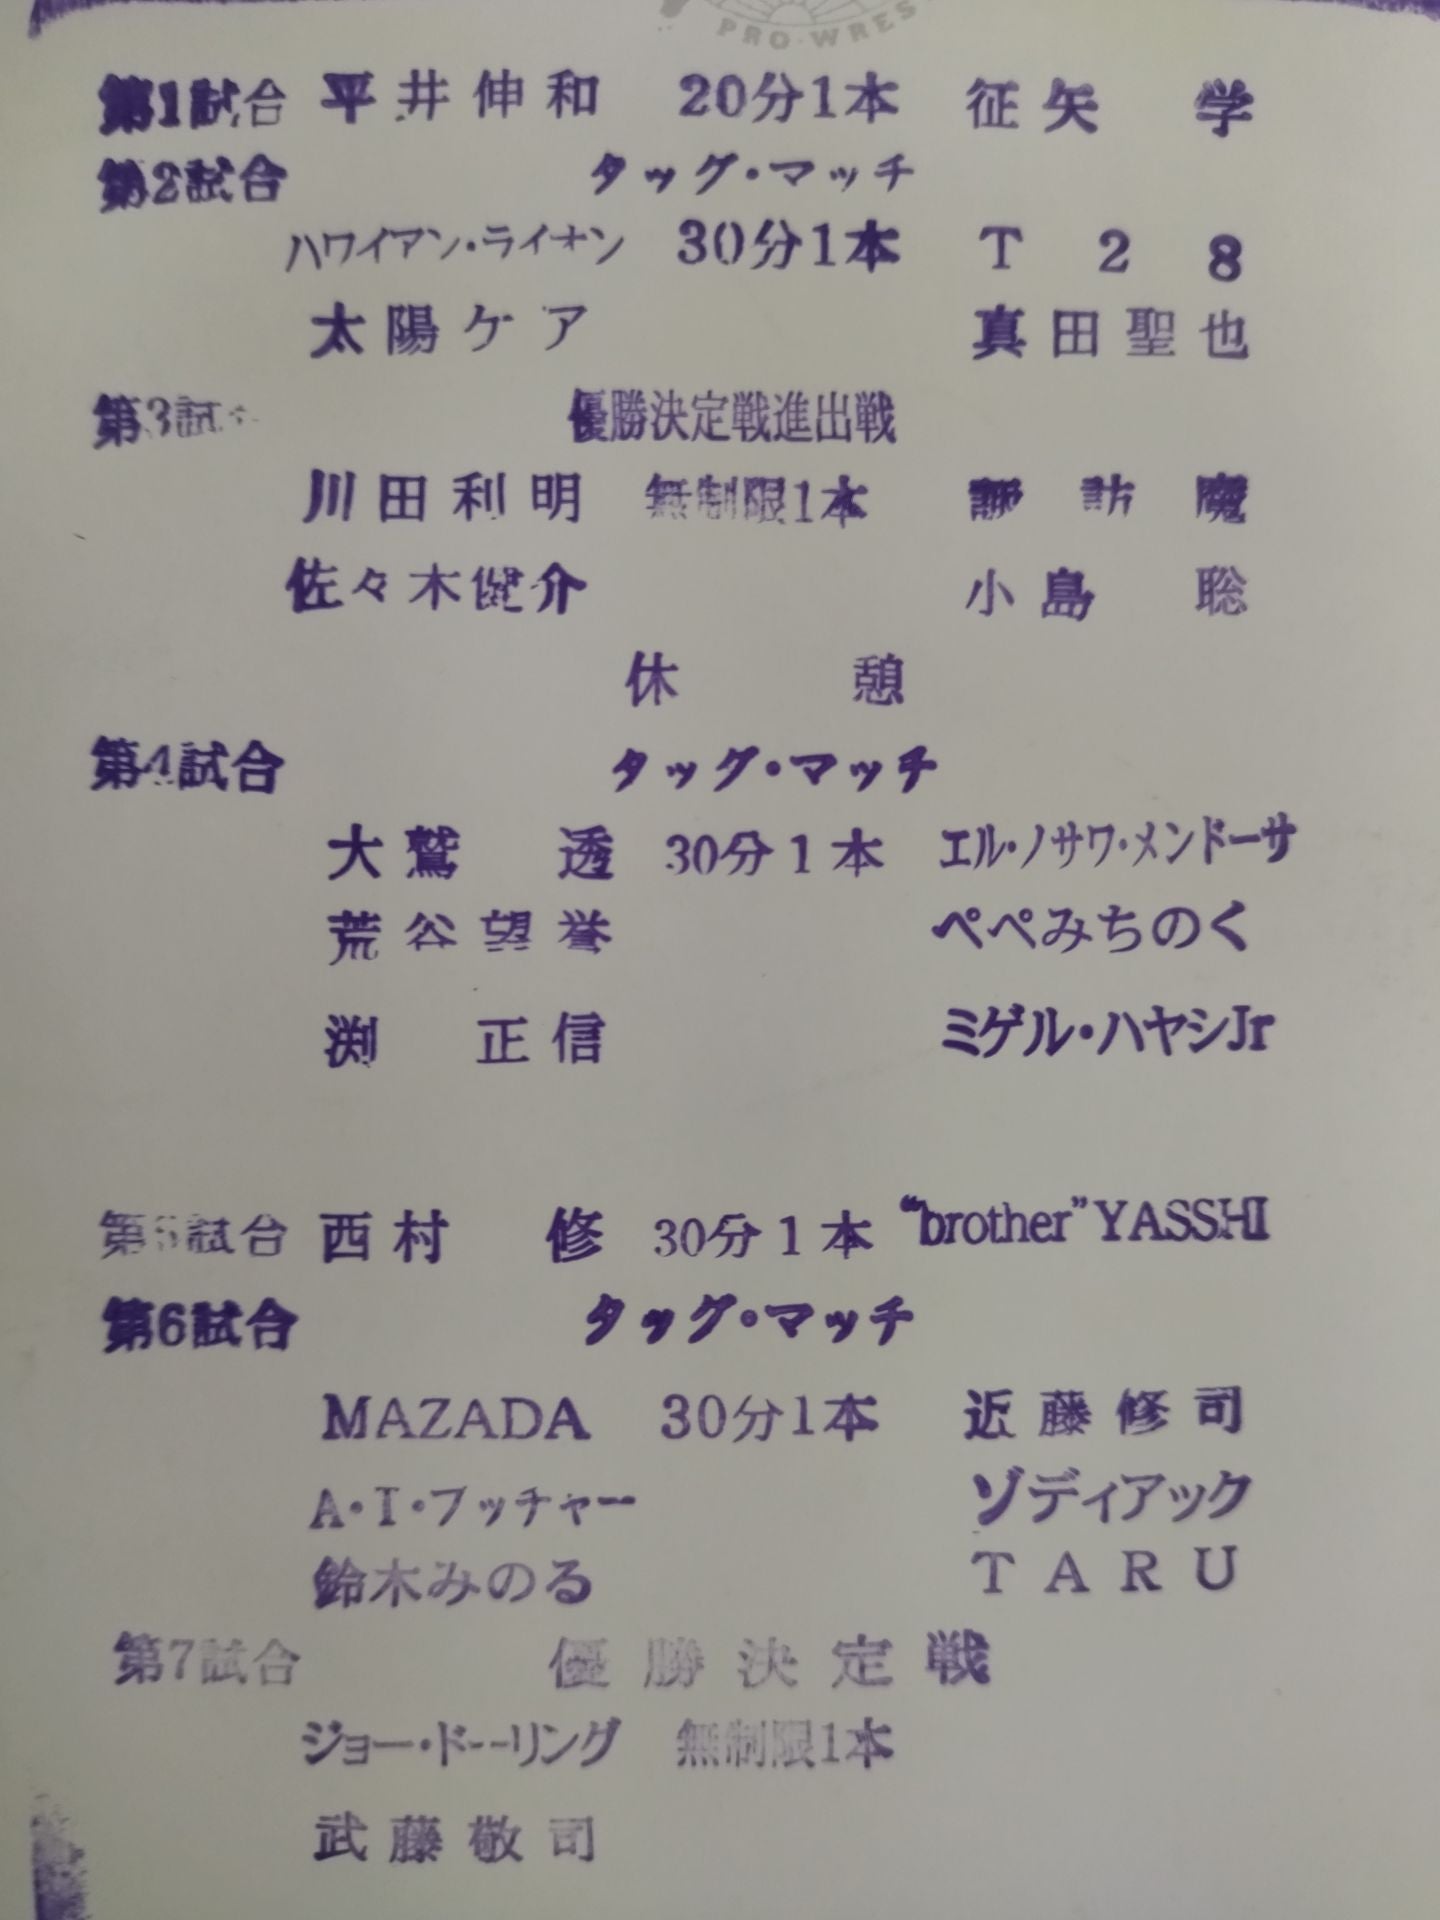 PRO-WRES
第1試合 平井伸和 20分1本 征矢 学
第2試合 タッグ・マッチ
ハワイアン・ライオン 30分1本 T28
太陽ケア 真田聖也
第3試合 優勝決定戦進出戦
川田利明 無制限1本 諏訪魔
佐々木健介 小島 聡
休憩
第4試合 タッグ・マッチ
大鷲 透 30分1本 エル・ノサワ・メンドーサ
荒谷望誉 ペペみちのく
渕 正信 ミゲル・ハヤシJr
第5試合 西村 修 30分1本 “brother”YASSHI
第6試合 タッグ・マッチ
MAZADA 30分1本 近藤修司
A・T・ブッチャー ゾディアック
鈴木みのる TARU
第7試合 優勝決定戦
ジョー・ドーリング 無制限1本
武藤敬司